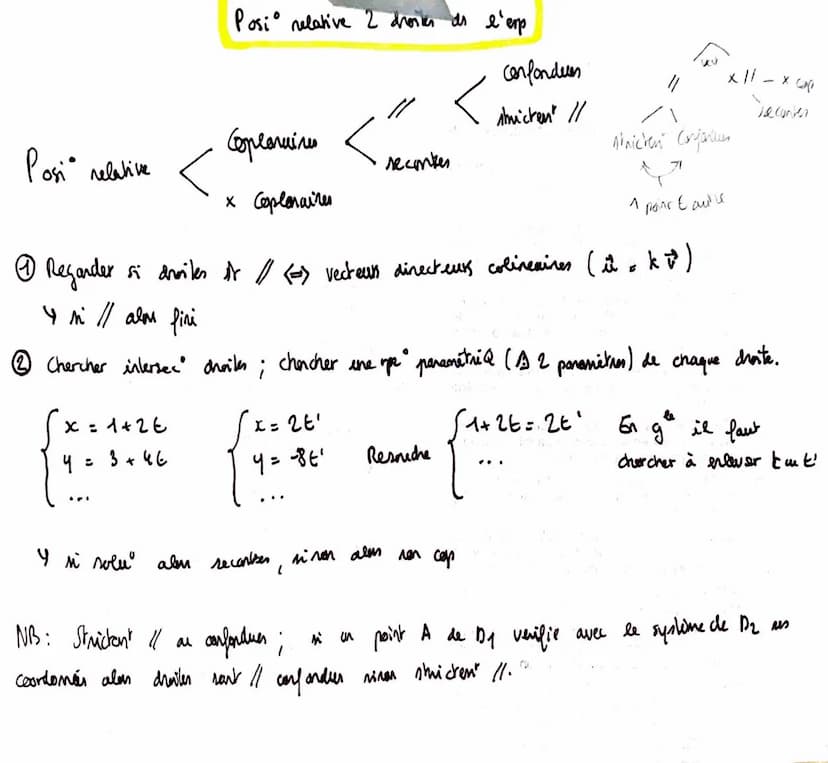 Posi° relative 2 droites ds l'esp
Posi° relative
Coplanaires
x Coplanaires
//
secantes
confondues
strictent //
//
x // - x cop
secantes
strictent Confondues
1 point E autre
① Regarder si droites st // <=> vecteurs directeurs colineaires ( u⃗ = k v⃗ )
↳ si // alors fini
② Chercher intersec° droites ; chercher une rep° paramétriq (⚠ 2 paramètres) de chaque droite.
{ x = 1+2t { x = 2t' { 1+2t = 2t' En gle il faut
y = 3+4t y = -8t' Resoudre ... chercher à enlever t ou t'
... ...
↳ si solu° alors secantes, sinon alors non cop
NB : Strictent // ou confondues ; si un point A de D1 verifie avec le système de D2 ses
coordonnées alors droites sont // confondues sinon strictent //.